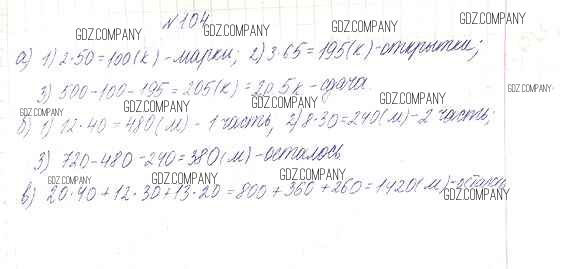 №104
а) 1) 2·50=100(к) - марки; 2) 3·65=195(к) - открытки;
3) 500-100-195=205(к)=2р 5к - сдача.
б) 1) 12·40=480(м) - 1 часть, 2) 8·30=240(м) - 2 часть;
3) 720-480-240=380(м) - осталось
в) 20·40+12·30+13·20=800+360+260=1420(м) -
GDZ.COMPANY
GDZ.COMPANY
GDZ.COMPANY
GDZ.COMPANY
GDZ.COMPANY
GDZ.COMPANY
GDZ.COMPANY
GDZ.COMPANY
GDZ.COMPANY
GDZ.COMPANY
GDZ.COMPANY
GDZ.COMPANY
GDZ.COMPANY